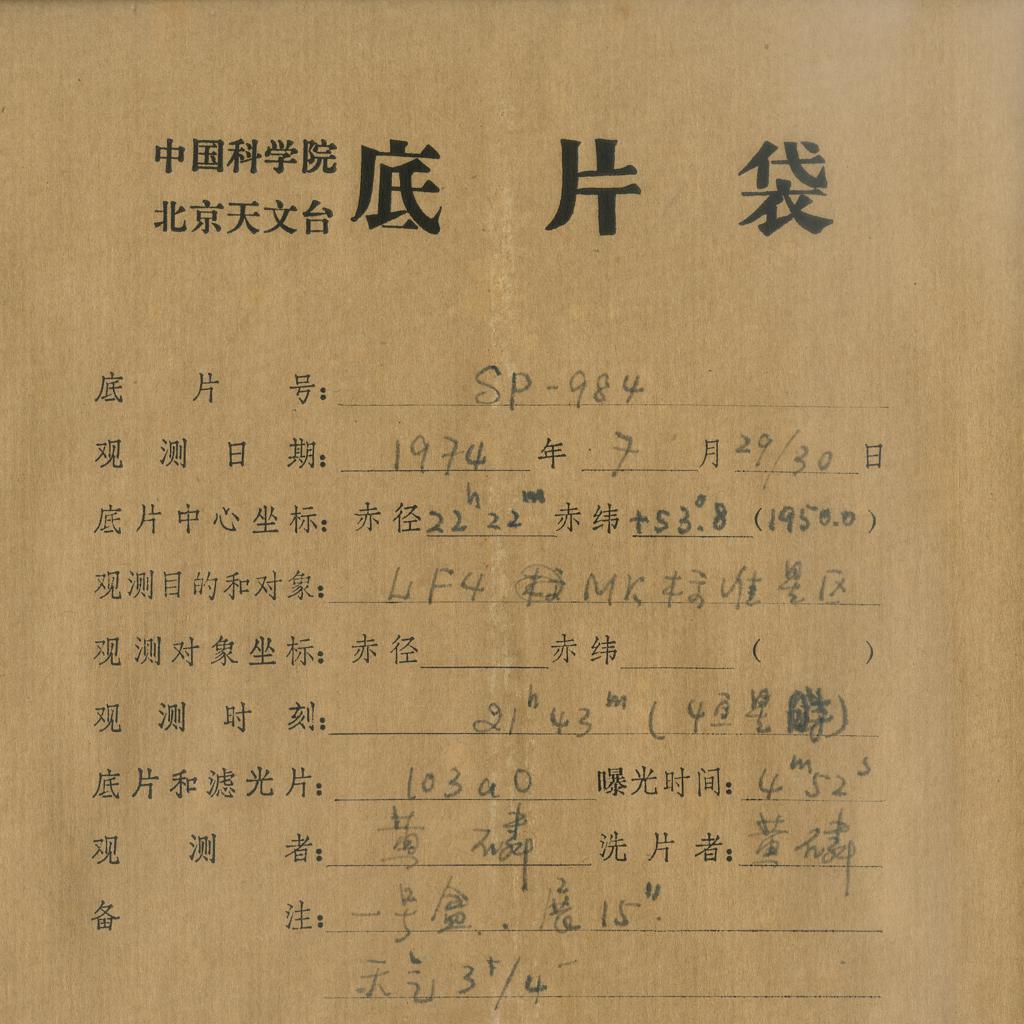 中国科学院
北京天文台
底片袋
底片号: SP-984
观测日期: 1974年7月29/30日
底片中心坐标: 赤径22h22m赤纬+53°.8 (1950.0)
观测目的和对象: LF4 MK标准星区
观测对象坐标: 赤径 赤纬 ( )
观测时刻: 21h43m (恒星时)
底片和滤光片: 103aO 曝光时间: 4m52s
观测者: 黄磷 洗片者: 黄磷
备注: 一号盒. 展15"
天气3+/4-